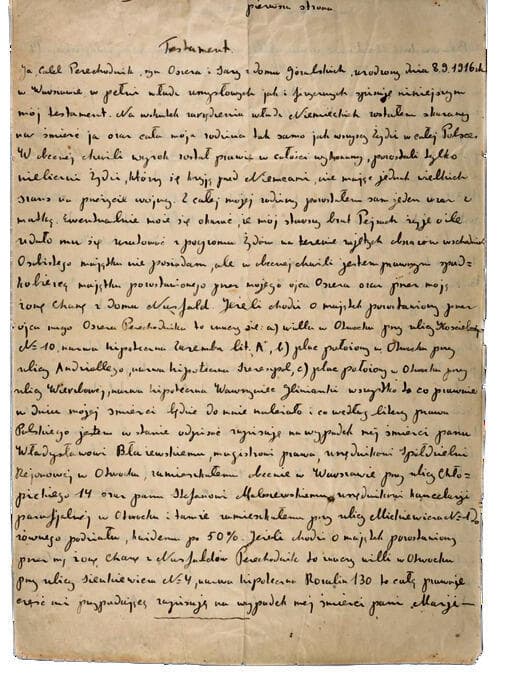 pierwsza strona
Testament.
Ja, Calel Perechodnik, syn Oszera i Sary z domu Góralskich, urodzony dnia 8.9.1916 r.
w Warszawie w pełni władz umysłowych jak i fizycznych spisuję niniejszym
mój testament. Na wskutek zarządzenia władz Niemieckich zostałem skazany
na śmierć ja oraz cała moja rodzina tak samo jak wszyscy Żydzi w całej Polsce.
W obecnej chwili wyrok został prawie w całości wykonany, pozostali tylko
nieliczni Żydzi, którzy się kryją pod Niemcami, nie mając jednak wielkich
szans na przeżycie wojny. Z całej mojej rodziny pozostałem sam jeden wraz z
matką. Ewentualnie może się okazać że mój starszy brat Pejsach żyje o ile
udało mu się uratować z pogromu Żydów na terenie zajętych obszarów wschodnich
Osobistego majątku nie posiadam, ale w obecnej chwili jestem prawnym spad-
kobiercą majątku pozostawionego przez mojego ojca Oszera oraz przez moją
żonę Chanę z domu Nusfeld. Jeżeli chodzi o majątek pozostawiony przez
ojca mego Oszera Perechodnika to znaczy się: a) willa w Otwocku przy ulicy Kościelnej
№ 10, nazwa hipoteczna Zaremba lit. "A", b) plac położony w Otwocku przy
ulicy Andriollego, nazwa hipoteczna c) plac położony w Otwocku przy
ulicy nazwa hipoteczna Wawrzyniec wszystko to co prawnie
w dniu mojej śmierci będzie do mnie należało i co według litery prawa
Polskiego jestem w stanie odpisać zapisuję na wypadek mej śmierci panu
Władysławowi Błażewskiemu, magistrowi prawa, urzędnikowi Spółdzielni
Rejonowej w Otwocku, zamieszkałemu obecnie w Warszawie przy ulicy Chło-
pickiego 14 oraz panu Stefanowi Maliszewskiemu urzędnikowi kancelarji
parafjalnej w Otwocku i tamże zamieszkałemu przy ulicy Mickiewicza № do
równego podziału, każdemu po 50%. Jeżeli chodzi o majątek pozostawiony
przez mą żonę Chanę z Nusfeldów Perechodnik to znaczy willi w Otwocku
przy ulicy Sienkiewicza № 4, nazwa hipoteczna Rozalin 130 to całą prawnie
część mi przypadającą zapisuję na wypadek mej śmierci pani Marji—